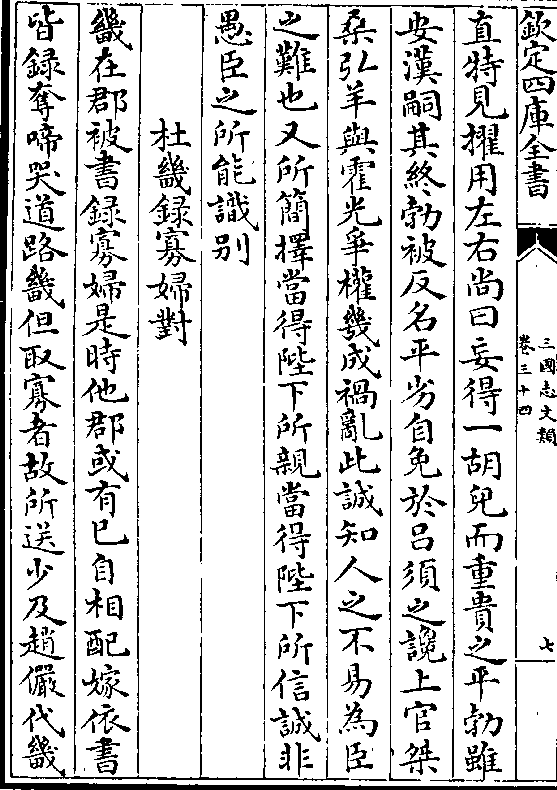 欽定四庫全書
三國志文類
卷三十四
七
直特見擢用左右尚曰妄得一胡兒而重貴之平勃雖
安漢嗣其終勃被反名平劣自免於吕須之讒上官桀
桑弘羊與霍光爭權幾成禍亂此誠知人之不易為臣
之難也又所簡擇當得陛下所親當得陛下所信誠非
愚臣之所能識别
杜畿録寡婦對
畿在郡被書録寡婦是時他郡或有已自相配嫁依書
皆録奪啼哭道路畿但取寡者故所送少及趙儼代畿